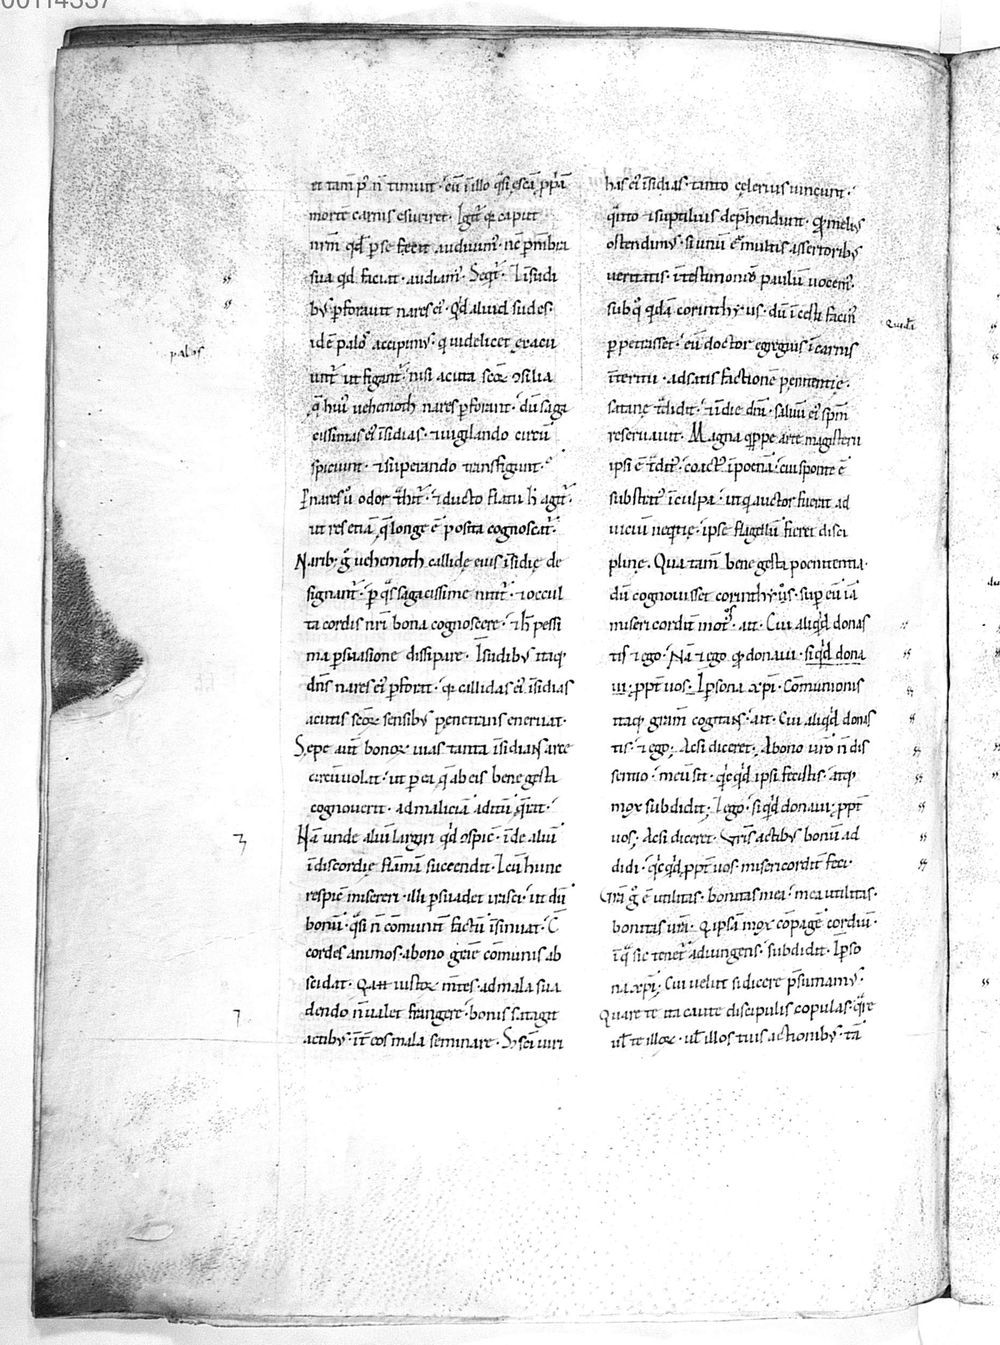 00114337
et tam̄ p̄ n̄ timuit · eū ī illo q̄si escā ꝓp̄ā
mortē carnis esuriret · Igit̄ q̄a caput
nr̄m qd̄ p̄ se fecit audiuim᷒ · nc̄ p̄ mēbra
sua qd̄ faciat · audiam᷒ · Seqt̄ · I sudi
bꝰ ꝑforauit nares ei᷒ · Qd̄ aliud sudes ·
id ē palos accipimꝰ · q uidelicet exacu
unt̄ ut figant̄ · nisi acuta sc̄oꝝ ↄsilia
q̄ hui᷒ uehemoth nares ꝑforant · dū saga
cissimas ei᷒ īsidias · ⁊ uigilando circū
spiciunt · ⁊ superando transfigunt ·
P nares u᷒ odor t̄hit̄ · ⁊ ducto flatu h̄ agit̄ ·
ut res etiā q̄ longe ē posita cognoscat̄ ·
Narib᷒ g᷒ uehemoth callidę eius īsidię de
signant̄ · ꝑ q̄s sagacissime nitit̄ · ⁊ occul
ta cordis nr̄i bona cognoscere · ⁊ h̄ pessi
ma ꝑsuasione dissipare · I sudibꝰ itaq᷒
dn̄s nares ei᷒ ꝑforat · q̄a callidas ei᷒ īsidias
acutis sc̄oꝝ sensibꝰ penetrans eneruat ·
Sepe aut̄ bonoꝝ uias tanta īsidians arte
circūuolat · ut ꝑ ea q̄ ab eis bene gesta
cognouerit · ad maliciā aditū q̄rat ·
Nā unde aliū largiri qd̄ ospic̄ · īde aliū
ī discordię flāmā succendit · I cū hunc
respic̄ misereri · illi ꝑsuadet irasci · ut dū
bonū · q̄si n̄ comunit̄ factū īsinuat · C̄
cordes animos · a bono gr̄e cōmunis ab
scidat · Qa iustoꝝ m̄tes · ad mala sua
dendo n̄ ualet frangere · bonis satagit
actibꝰ · īt̄ eos mala seminare · S sc̄i uiri
has ei᷒ īsidias · tanto celerius uincunt ·
q̄nto ⁊ suptilius dep̄hendunt · Q᷒ meliꝰ
ostendimꝰ · si unū e multis assertoribꝰ
ueritatis · ī testimoniō paulū uocem᷒ ·
sub q᷒ q̄dā corinthyꝰus · dū īcesti facin᷒
ꝑpetrasset · eū doctor egregius ī carnis
īteritū · ad satis factionē penitentię ·
satanę t̄didit · ⁊ ī die dn̄i · saluū ei᷒ sp̄m
reseruauit · Magna q̄ppe arte magisterii
ipsi ē t̄dit᷒ · coact᷒ ī poenā · cui sponte ē
substrat᷒ ī culpa · ut q auctor fuerat ad
uiciū neq̄tię · ipse flagellū fieret disci
plinę · Qua tam̄ bene gesta poenitentia ·
dū cognouisset corinthyꝰos · sup eū iā
misericordit̄ motos · ait · Cui aliqd̄ donas
tis ⁊ ego · Nā ⁊ ego qd̄ donaui · si qd̄ dona
ui · ꝓpt̄ uos · I psona xp̄i · Cōmunionis
itaq᷒ gr̄am cogitans · ait · Cui aliqd̄ donas
tis · ⁊ ego · Acsi diceret · A bono uro n̄ dis
sentio · meū sit · q̄cq̄d ipsi fecistis · atq᷒
mox subdidit · I ego · si qd̄ donaui · ꝓpt̄
uos · Acsi diceret · Vr̄is actibꝰ bonū ad
didi · q̄cq̄d ꝓpt̄ uos · misericordit̄ feci ·
Vr̄a g᷒ ē utilitas · bonitas mea · mea utilitas ·
bonitas ur̄a · Q ipsā mox cōpagē cordiū ·
ī q᷒ sic tenet̄ adiungens · subdidit · I pso
na xp̄i · Cui uelut si dicere p̄sumamꝰ ·
Quare te ita caute discipulis copulas · q̄re
ul̄ te illoꝝ · ul̄ illos tuis actionibꝰ · tā
palos